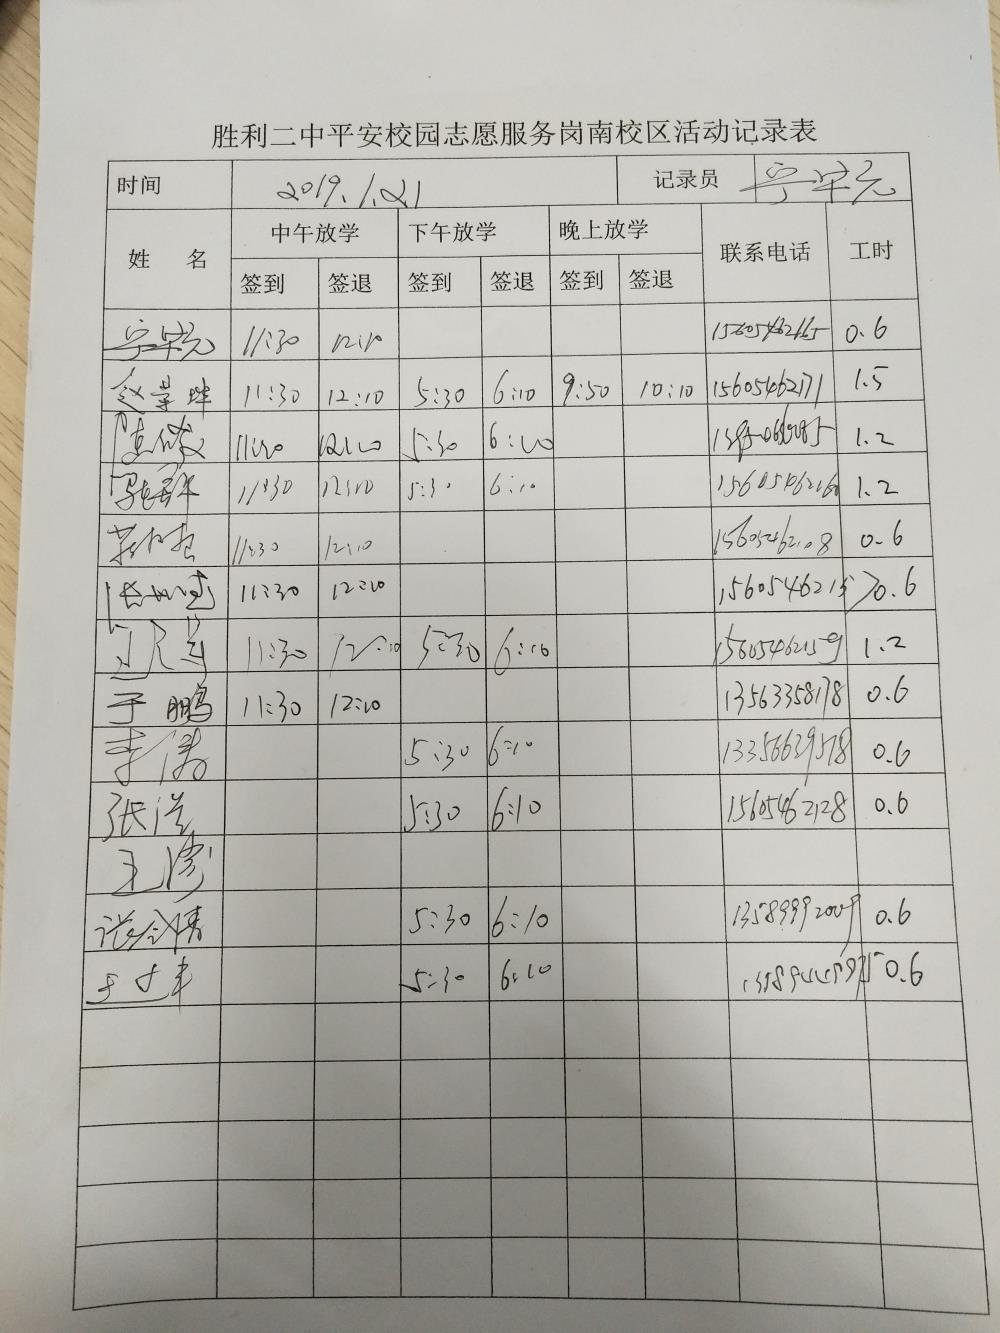 胜利二中平安校园志愿服务岗南校区活动记录表
时间 2019.1.21 记录员
姓 名 中午放学 下午放学 晚上放学 联系电话 工时
签到 签退 签到 签退 签到 签退
11:30 12:10 15605462165 0.6
11:30 12:10 5:30 6:10 9:50 10:10 15605462171 1.5
11:30 12:10 5:30 6:10 1.2
11:30 12:10 5:30 6:10 15605462160 1.2
11:30 12:10 15605462108 0.6
11:30 12:10 0.6
11:30 12:10 5:30 6:10 15605462159 1.2
于鹏 11:30 12:10 13563358178 0.6
李涛 5:30 6:10 13356629578 0.6
张洪 5:30 6:10 15605462128 0.6
王涛
5:30 6:10 13589992009 0.6
5:30 6:10 0.6